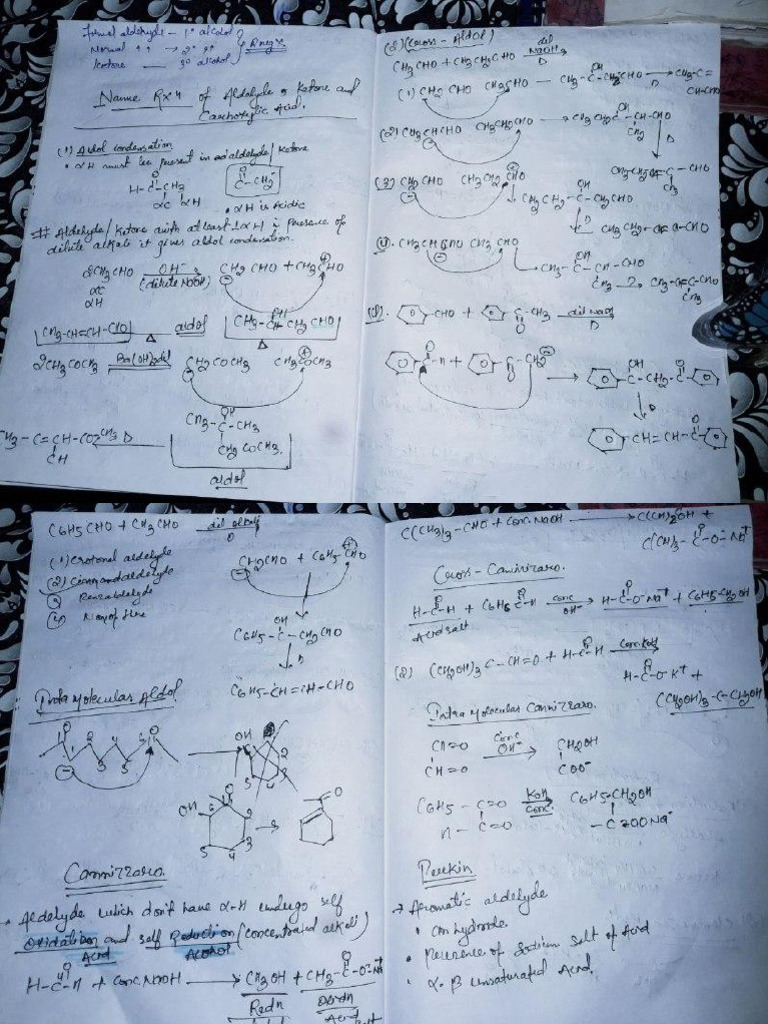 Formal aldehyde - 1° alcohol
Normal " → 2° "
Ketone — 3° alcohol
Name Rxn of Aldehyde & Ketone and
Carboxylic Acid.
(1) Aldol condensation
• αH must be present in aldehyde/Ketone
H-C-CH3
O
αC αH
C-CH2
• αH is Acidic
# Aldehyde/Ketone with at least 1αH in presence of
dilute alkali it gives aldol condensation.
2CH3CHO OH- (dilute NaOH) CH2CHO + CH3CHO
αC
αH
CH3-CH=CH-CHO Δ aldol CH3-CH-CH2CHO
OH
2CH3COCH3 Ba(OH)2 dil CH2COCH3 CH3COCH3
OH
CH3-C-CH3
CH2COCH3
CH3-C=CH-CO CH3 Δ
CH
aldol
(Cross-Aldol)
CH3CHO + CH3CH2CHO dil NaOH Δ
(1) CH2CHO CH3CHO — CH3-C-CH2CHO → CH3-C=
OH
CH-CHO
(2) CH3CHCHO CH3CH2CHO → CH3CH2C-CH-CHO
OH
CH3
CH3-CH2-C=C-CHO
CH3
(3) CH2CHO CH3CH2CHO
OH
CH3CH2-C-CH2CHO
CH3CH2C=C-CHO
4. CH3CHCHO CH3CHO
OH
CH3-C-CH-CHO
CH3
CH3-C=C-CHO
CH3
-CHO + -C-CH3 dil NaOH Δ
O
-C-H + -C-CH2
OH O
-C-CH2-C-
Δ
O
-CH=CH-C-
C6H5CHO + CH3CHO dil alkali Δ
(1) Crotonal aldehyde
(2) Cinnamaldehyde
(3) Benzaldehyde
(4) Non of these
CH2CHO + C6H5CHO
OH
C6H5-C-CH2CHO
Δ
C6H5-CH=CH-CHO
Intra Molecular Aldol.
O 1 2 3 4 5 6 O
OH
OH 1 2 3 4 5 6 O
O
Cannizzaro.
• Aldehyde which don't have α-H undergo self
Oxidation and self Reduction (concentrated alkali)
Acid Alcohol
H-C-H + Conc. NaOH → CH3OH + CH3-C-O-Na+
O
Redn Oxidn
Acid
C(CH3)3-CHO + Conc. NaOH → C(CH3)3OH +
C(CH3)3-C-O-Na+
O
Cross-Cannizaro.
H-C-H + C6H5C-H conc OH- → H-C-O-Na+ + C6H5-CH2OH
Acid salt
(2) (CH2OH)3C-CH=O + H-C-H Conc. KOH
H-C-O-K+ +
(CH2OH)3-C-CH2OH
Intra Molecular Cannizzaro.
CH=O Conc OH- CH2OH
CH=O COO-
C6H5-C=O KOH Conc. C6H5-CH2OH
H-C=O -COONa
Perkin
→ Aromatic aldehyde
• anhydride
• Presence of Sodium Salt of Acid
• α-β unsaturated Acid.